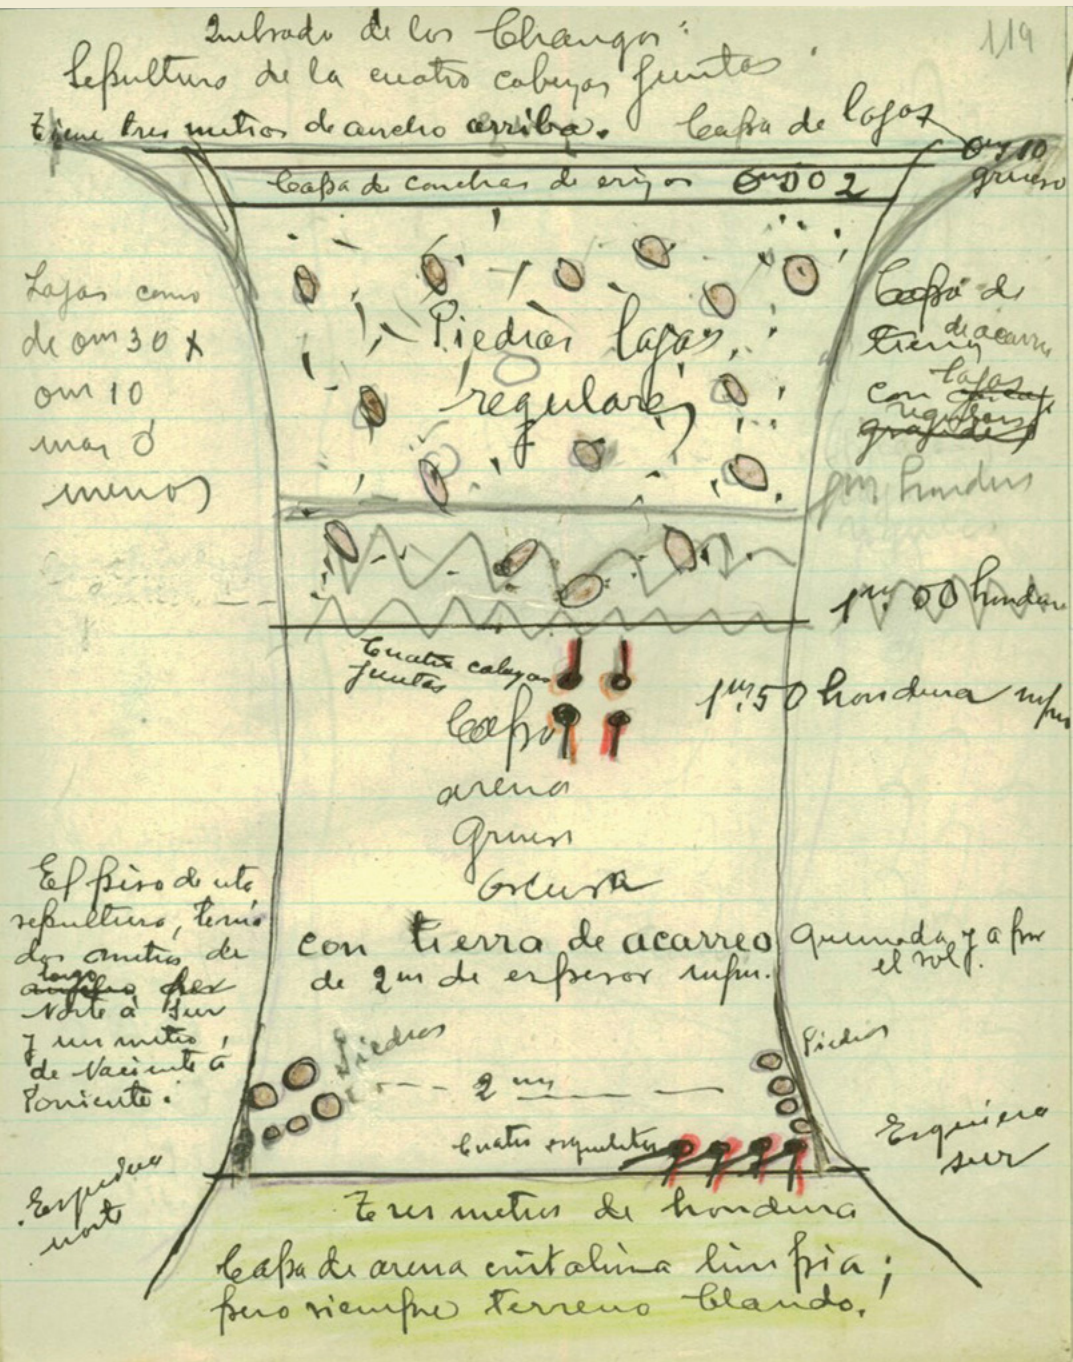 119
Quebrada de los Changos:
Sepultura de la cuatro cabezas juntas
Tiene tres metros de ancho arriba. Capa de lajas
0m10
grueso
Capa de conchas de erizos 0m002
Lajas como
de 0m30 x
0m10
mas ó
menos
Piedras lajas
regulares
Capa de
tierra de acarreo
con lajas
regulares
hondura
1m.00 hondura
Cuatro cabezas
juntas
1m.50 hondura
Capa
arena
gruesa
oscura
con tierra de acarreo
de 2m de espesor
quemada y a por
el sol.
El piso de esta
sepultura, tenia
dos metros de
largo
Norte á Sur
y un metro
de Naciente á
Poniente.
Piedras
2 m
Piedras
Cuatro esqueletos
Esquina
norte
Esquina
sur
Tres metros de hondura
Capa de arena cristalina limpia;
pero siempre terreno blando.